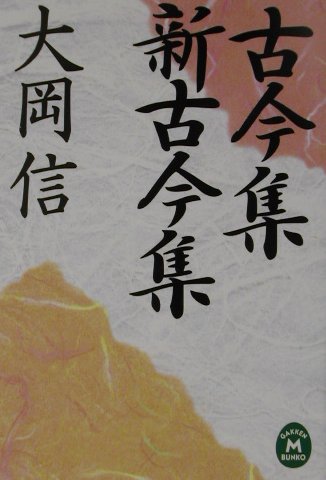 古今集
新古今集
大岡信
GAKKEN
M
BUNKO